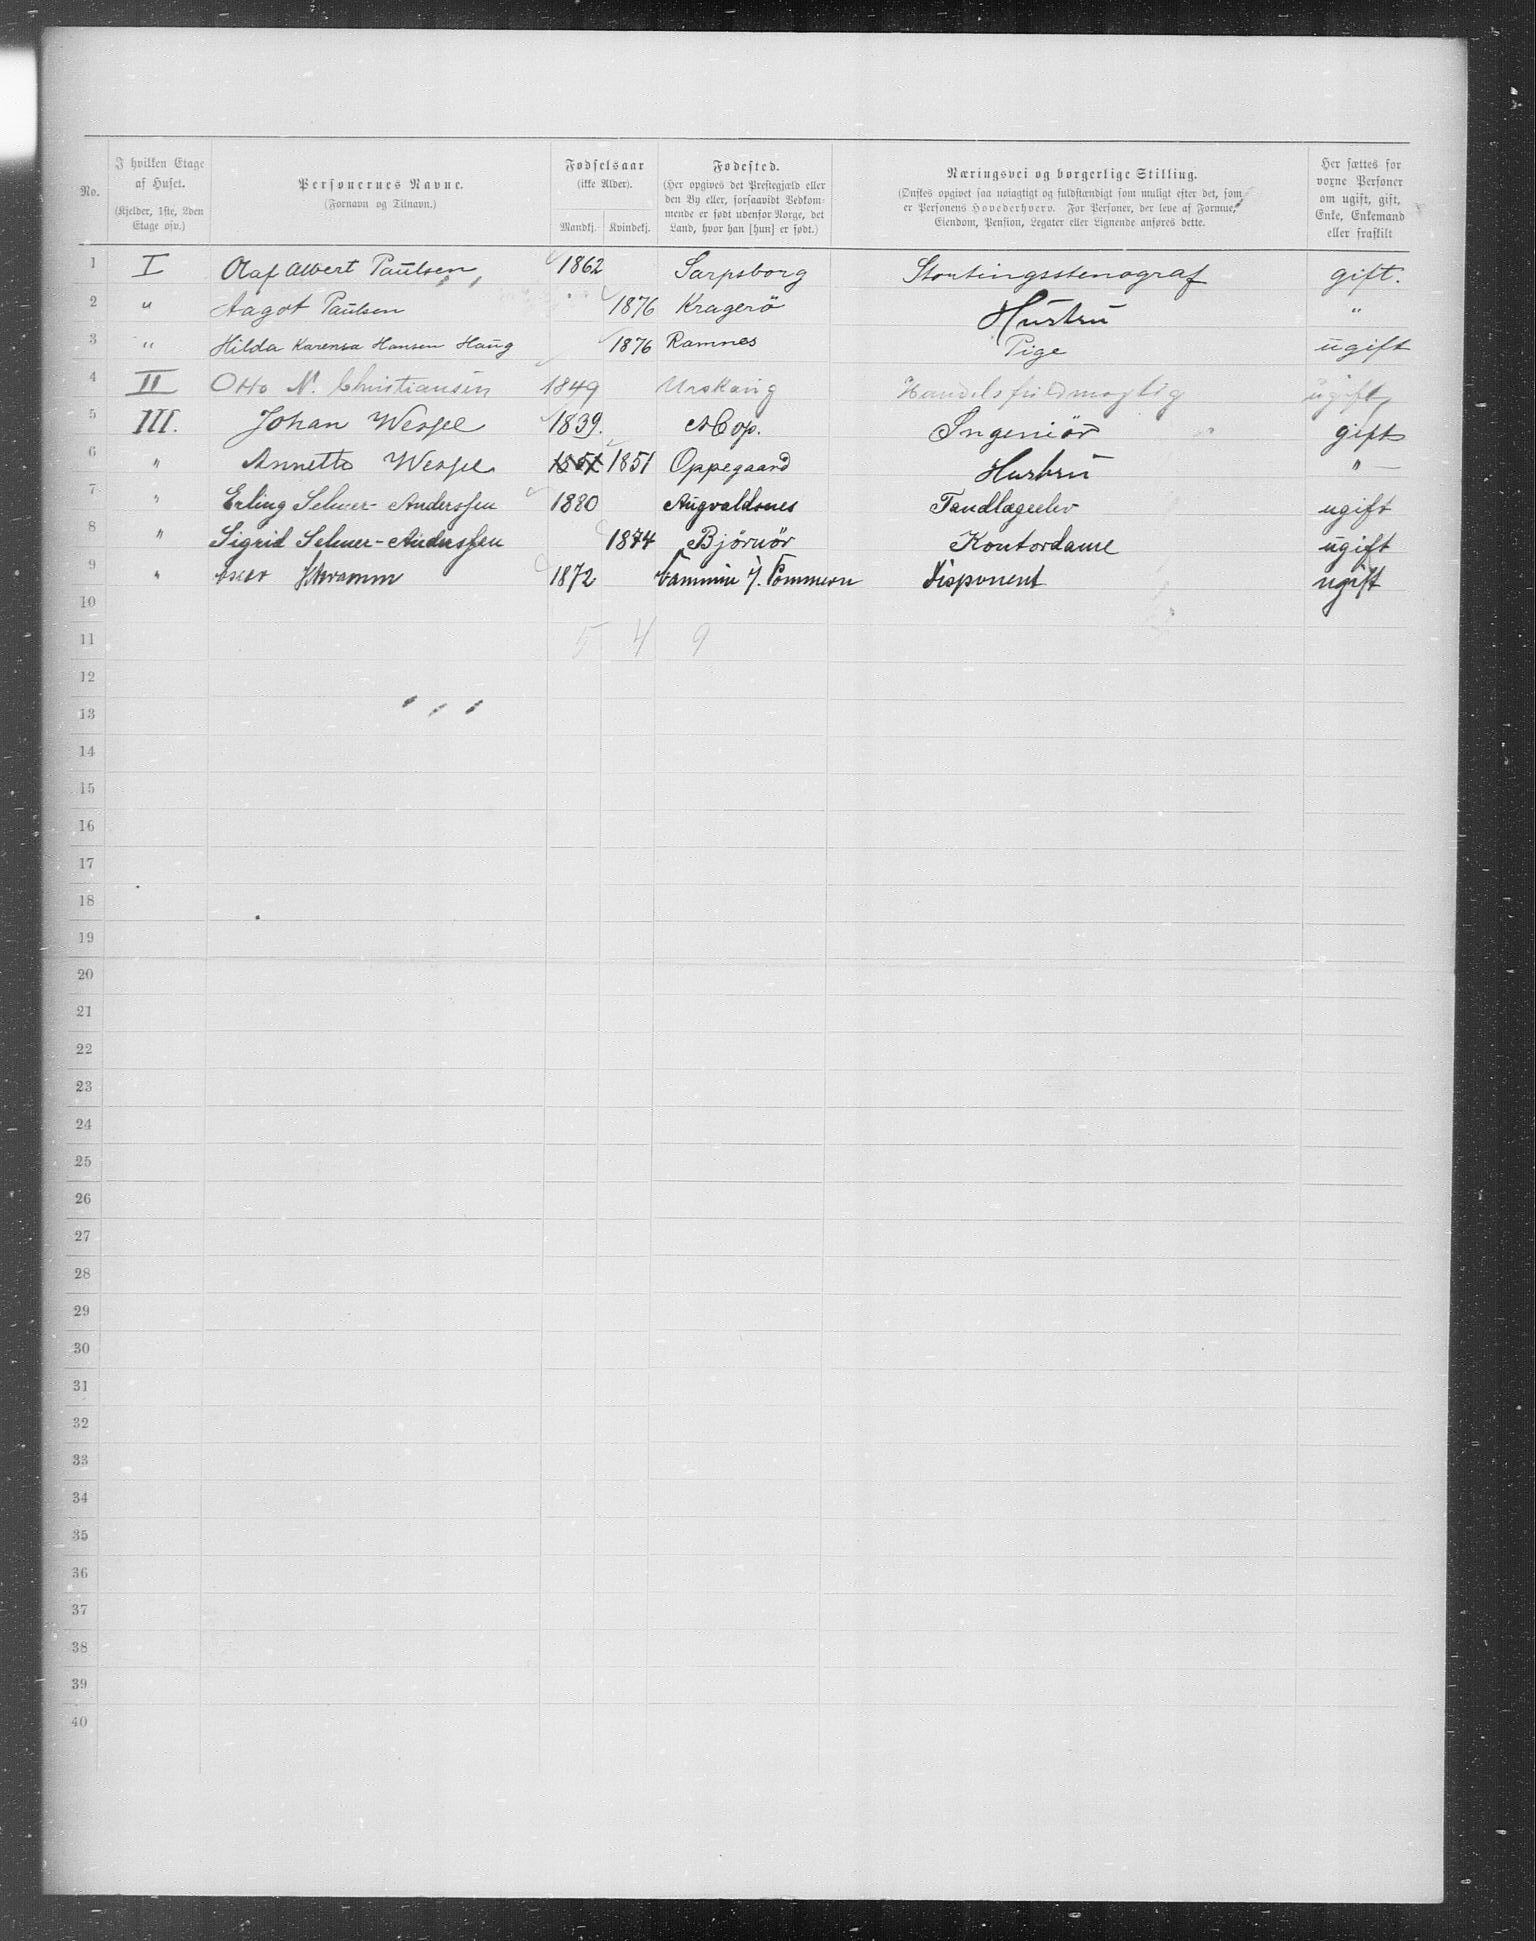 No. | I hvilken Etage af Huset. (Kjelder, 1ste, 2den Etage osv.) | Personernes Navne. (Fornavn og Tilnavn.) | Fødselsaar (ikke Alder). Mandkj. | Kvindekj. | Fødested. (Her opgives det Prestegjæld eller den By eller, forsaavidt Vedkommende er født udenfor Norge, det Land, hvor han [hun] er født.) | Næringsvei og borgerlige Stilling. (Ønskes opgivet saa nøiagtigt og fuldstændigt som muligt efter det, som er Personens Hovederhverv. For Personer, der leve af Formue, Eiendom, Pension, Legater eller Lignende anføres dette. | Her sættes for voxne Personer om ugift, gift, Enke, Enkemand eller fraskilt
1 | I | Olaf Albert Paulsen | 1862 | | Sarpsborg | Stortingsstenograf | gift.
2 | " | Aagot Paulsen | | 1876 | Kragerö | Hustru | "
3 | " | Hilda Karensa Hansen Haug | | 1876 | Ramnes | Pige | ugift
4 | II | Otto N. Christiansen | 1849 | | Urskoug | Handelsfuldmægtig | ugift
5 | III. | Johan Wessel | 1839. | | Hop. | Ingeniör | gift
6 | " | Annette Wessel | 1851 | 1851 | Oppegaard | Hustru | " —
7 | " | Erling Selmer-Anderssen | 1880 | | Augvaldsnes | Tandlægeelev | ugift
8 | " | Sigrid Selmer-Anderssen | | 1874 | Bjørnör | Kontordame | ugift
9 | " | Schramm | 1872 | | Cammin i. Pommern | Disponent | ugift
10
11 | | | 5 | 4 | 9
12
13
14
15
16
17
18
19
20
21
22
23
24
25
26
27
28
29
30
31
32
33
34
35
36
37
38
39
40